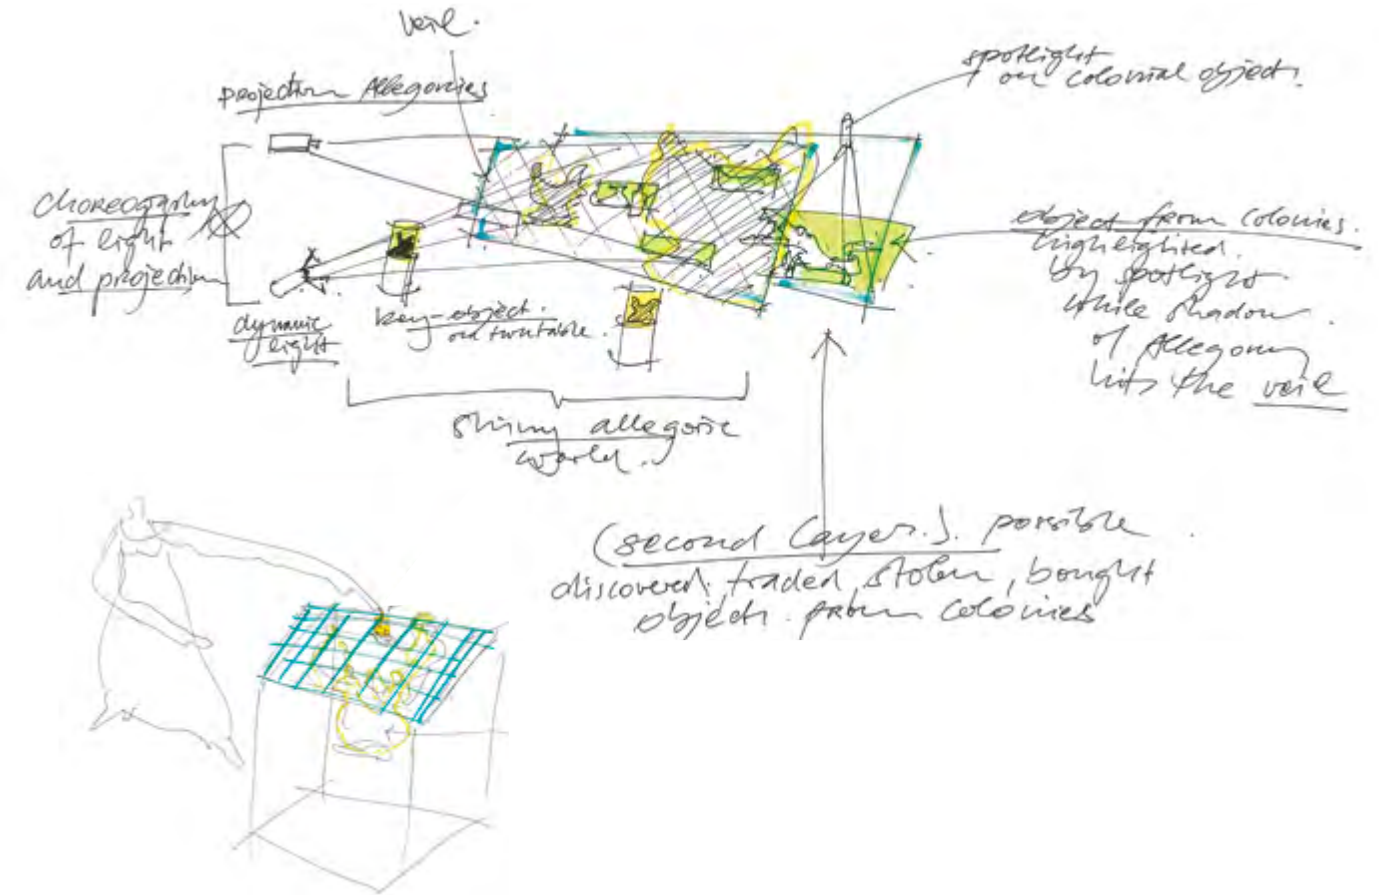 veil.
projection Allegories
spotlight
on colonial object.
choreography
of light
and projection
dynamic
light
key-object.
on turntable.
shiny allegoric
world.
object from colonies.
highlighted.
by spotlight.
while shadow.
of Allegory
hits the veil
(second layer.). possible
discovered, traded, stolen, bought
objects from colonies